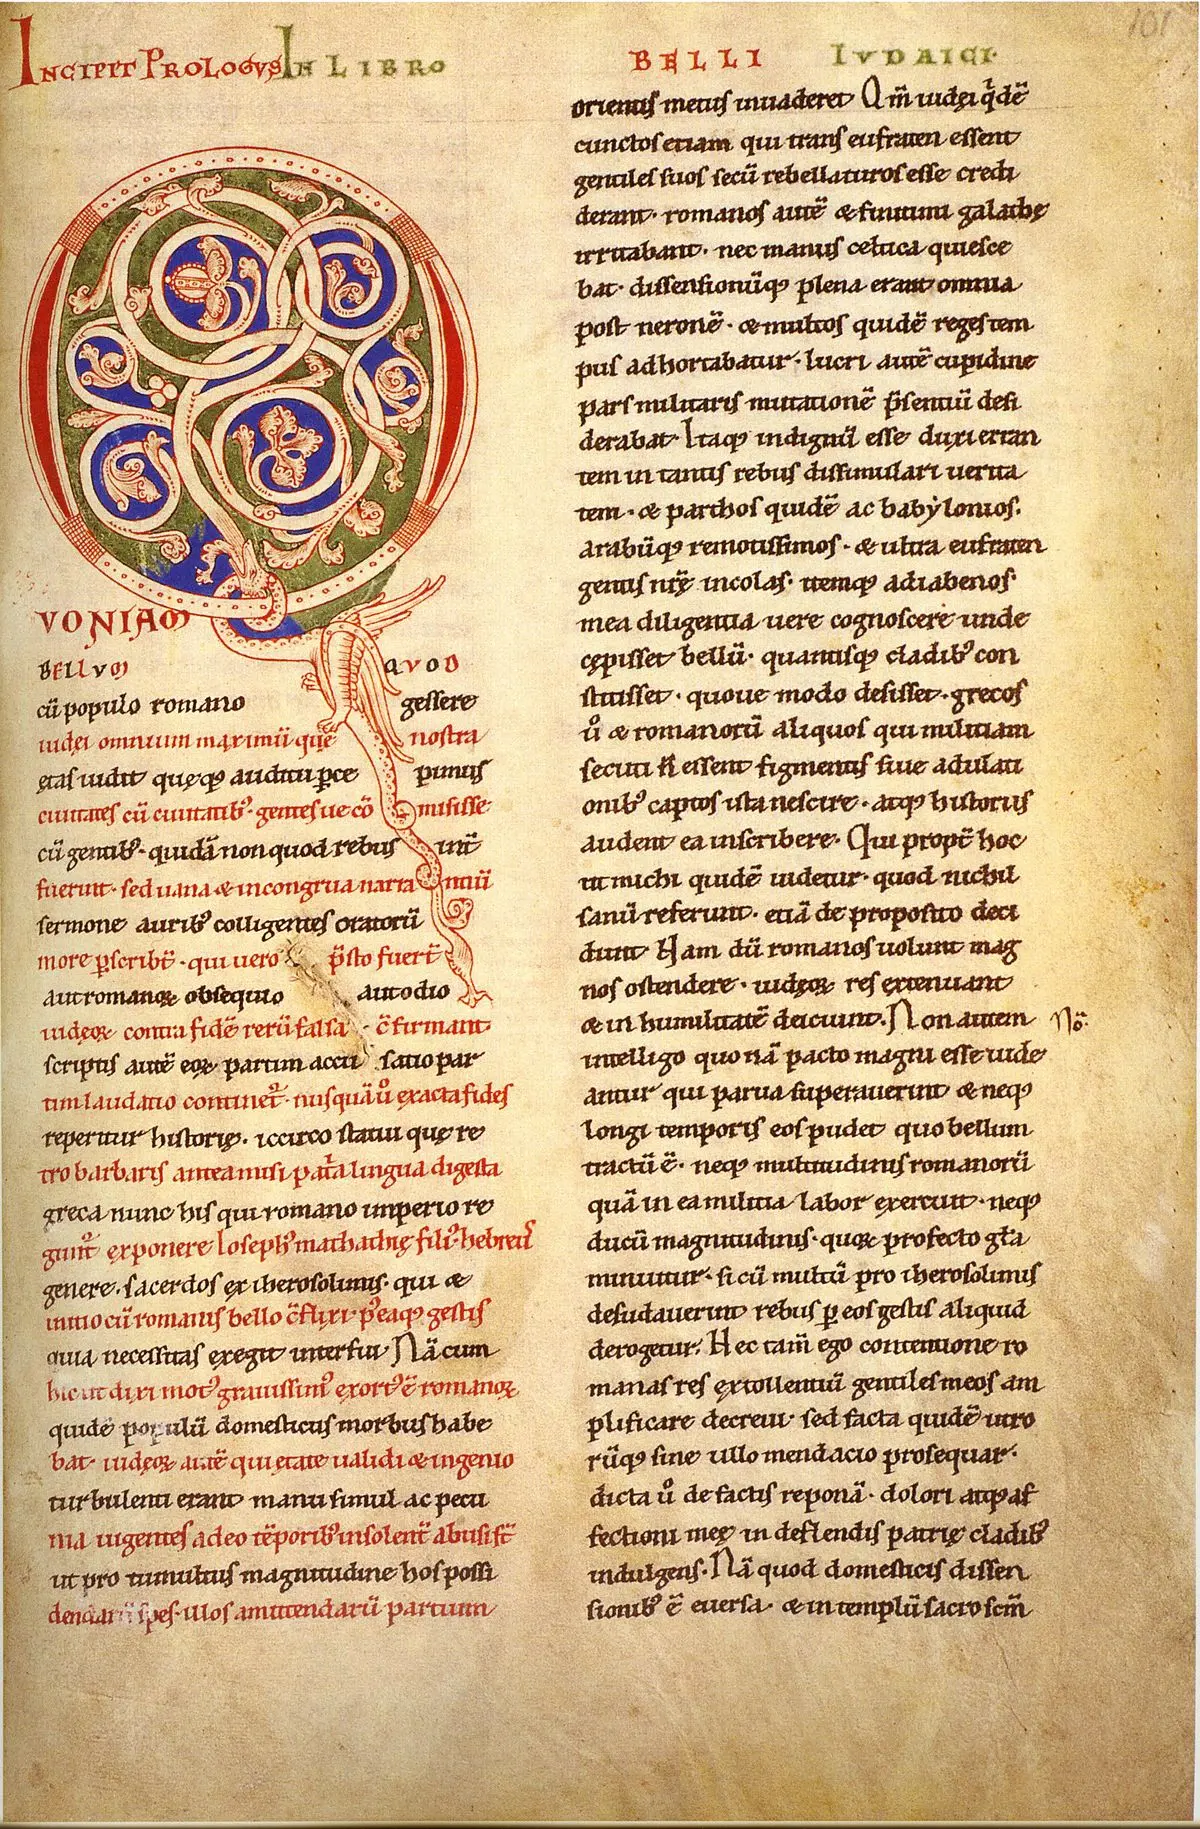 INCIPIT PROLOGVS IN LIBRO
BELLI IVDAICI.
101
VONIAM
BELLVM QVOD
cū populo romano gessere
iudei omnium maximū que nostra
ętas uidit quęq; auditu ꝑce pimus
ciuitates cū ciuitatib; gentesue cō misisse
cū gentib; quidā non quod rebus int̄
fuerunt. sed uana & incongrua narra tiūū
sermone aurib; colligentes oratorū
more ꝑscribt̄. qui uero p̄sto fuert̄
aut romanoꝝ obsequio aut odio
iudęoꝝ contra fidē rerū falsa c̄firmant
scriptis autē eoꝝ partim accu satio par
tim laudatio continet᷑. nusquā ů exacta fides
reperitur historię. iccirco statui quę re
tro barbaris antea misi pat̄a lingua digesta
greca nunc his qui romano imperio re
gunt᷑ exponere Ioseph; mathathię fili; hebreus
genere. sacerdos ex iherosolimis. qui &
initio cū romanis bello c̄flixi. p̄eaq; gestis
quia necessitas exegit interfui. Nā cum
hic ut dixi mot; grauissim; exort; ē romanoꝝ
quidē populū domesticus morbus habe
bat. iudęoꝝ autē qui ętate ualidi & ingenio
turbulenti erant manu simul ac pecu
nia uigentes adeo tēporib; insolent᷑ abusi st̄
ut pro tumultus magnitudine hos possi
dendarū spes. illos amittendarū partium
orientis metus inuaderet. Qm̄ iudęi q̄dē
cunctos etiam qui trans eufraten essent
gentiles suos secū rebellaturos esse credi
derant. romanos autē & finitimi galathę
irritabant. nec manus celtica quiesce
bat. dissensionūq; plena erant omnia
post neronē. & multos quidē reges tem
pus adhortabatur. lucri autē cupidine
pars militaris mutationē p̄sentiū desi
derabat. Itaq; indignū esse duxi erran
tem in tantis rebus dissimulari uerita
tem. & parthos quidē ac babylonios.
arabūq; remotissimos. & ultra eufraten
gentis nr̄ę incolas. itemq; adiabenos.
mea diligentia uere cognoscere unde
cępisset bellū. quantisq; cladib; con
stitisset. quoue modo desisset. grecos
ů & romanorū aliquos qui militiam
secuti n̄ essent figmentis siue adulati
onib; captos ista nescire. atq; historiis
audent ea inscribere. Qui propt̄ hoc
ut michi quidē uidetur. quod nichil
sanū referunt. etiā de proposito deci
dunt. Nam dū romanos uolunt mag
nos ostendere. iudęoꝝ res extenuant
& in humilitatē deiciunt. Non autem
Nō.
intelligo quo nā pacto magni esse uide
antur qui parua superauerint & neq;
longi temporis eos pudet quo bellum
tractū ē. neq; multitudinis romanorū
quā in ea militia labor exercuit. neq;
ducū magnitudinis. quoꝝ profecto gl̄a
minuitur. si cū multū pro iherosolimis
desudauerint rebus ꝑ eos gestis aliquid
derogetur. Hec tam̄ ego contentione ro
manas res extollentiū gentiles meos am
plificare decreui. sed facta quidē utro
rūq; sine ullo mendacio prosequar.
dicta ů de factis reponā. dolori atq; af
fectioni meę in deflendis patrię cladib;
indulgens. Nā quod domesticis dissen
sionib; ē euersa. & in templū sacrosc̄m